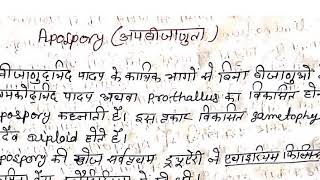 Apospory (अपबीजाणुता)
बीजाणुदभिद पादप के कायिक भागों से बिना बीजाणुओं
युग्मकोदभिद पादप अथवा Prothallus का विकसित होना
apospory कहलाती है। इस प्रकार विकसित gametophy
दैव diploid होते हैं।
apospory की खोज सर्वप्रथम ड्रूएरी ने एथाइरियम